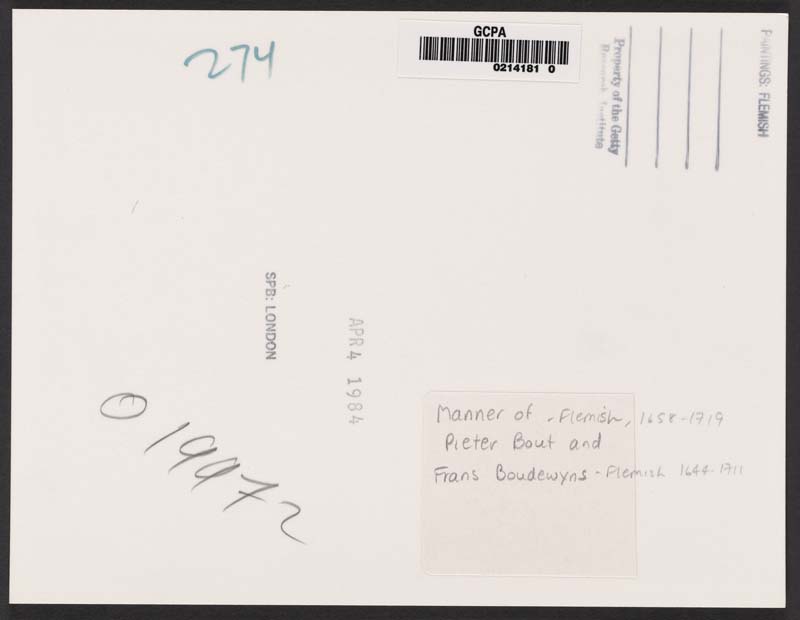 274
GCPA
0214181 0
Property of the Getty
Research Institute
PAINTINGS: FLEMISH
SPB: LONDON
APR 4 1984
019972
Manner of - Flemish, 1658-1719
Pieter Bout and
Frans Boudewyns - Flemish 1644-1711